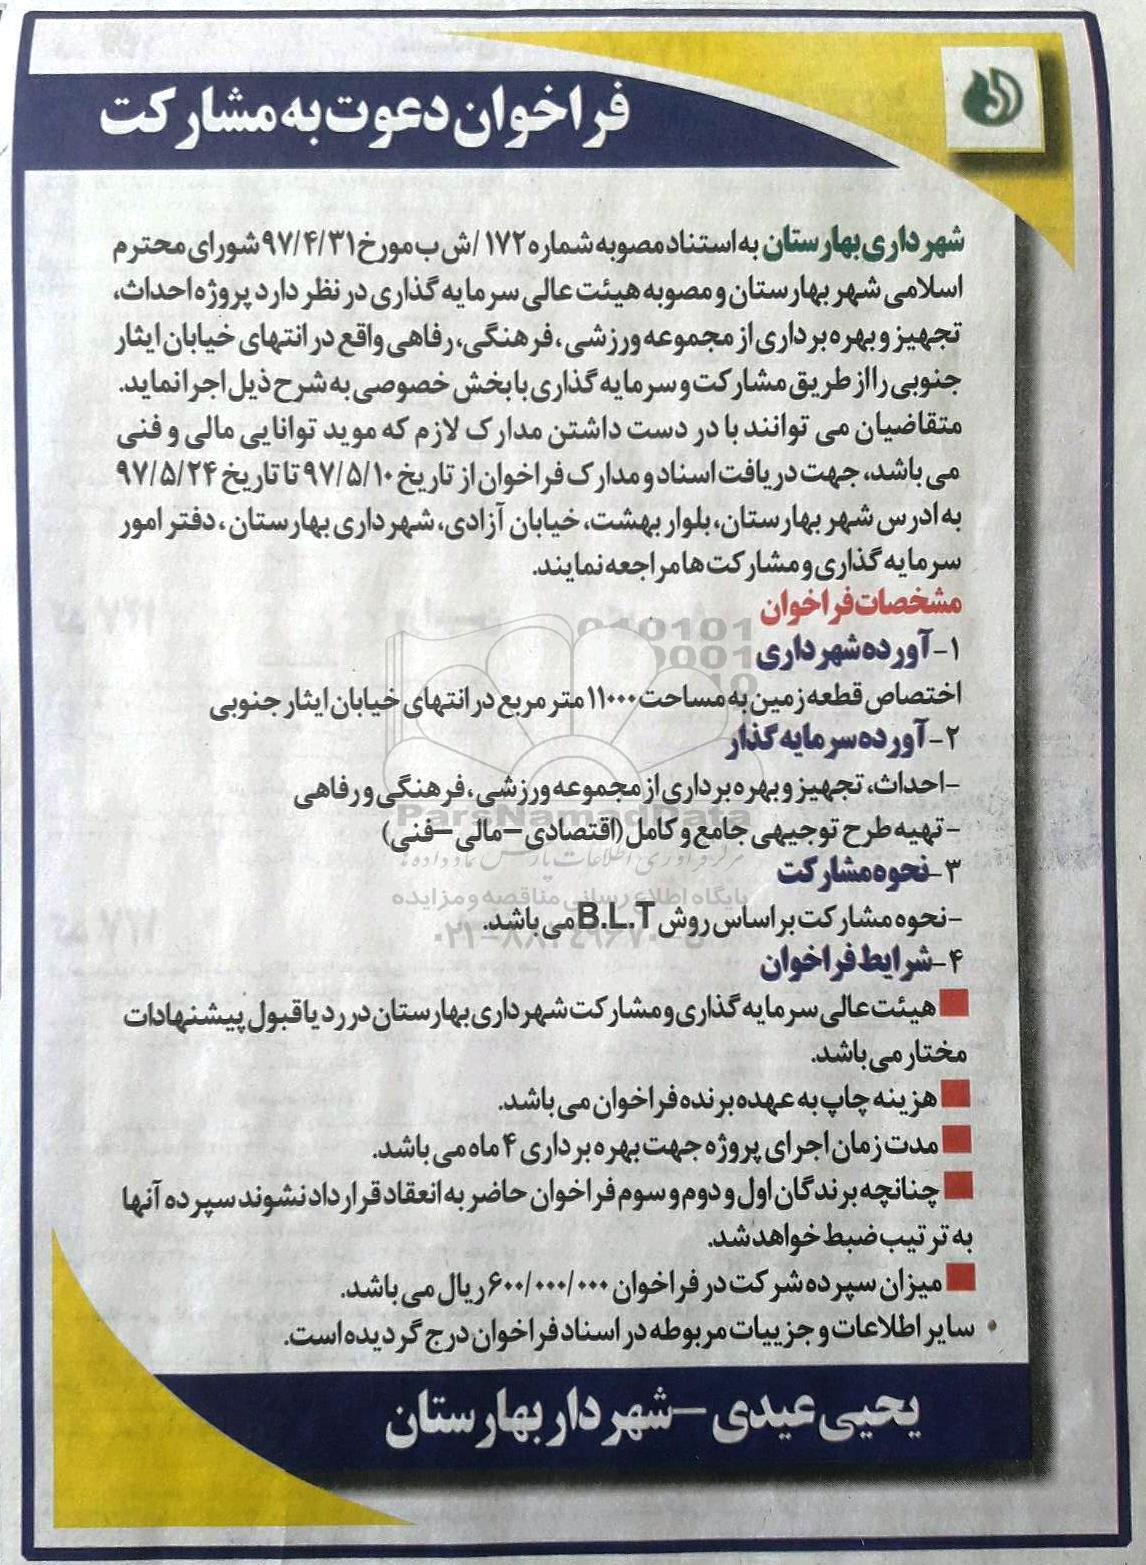 فراخوان دعوت به مشارکت
شهرداری بهارستان به استناد مصوبه شماره ۱۷۲/ش ب مورخ ۹۷/۴/۳۱ شورای محترم
اسلامی شهر بهارستان و مصوبه هیئت عالی سرمایه گذاری در نظر دارد پروژه احداث،
تجهیز و بهره برداری از مجموعه ورزشی، فرهنگی، رفاهی واقع در انتهای خیابان ایثار
جنوبی را از طریق مشارکت و سرمایه گذاری با بخش خصوصی به شرح ذیل اجرا نماید.
متقاضیان می توانند با در دست داشتن مدارک لازم که موید توانایی مالی و فنی
می باشد، جهت دریافت اسناد و مدارک فراخوان از تاریخ ۹۷/۵/۱۰ تا تاریخ ۹۷/۵/۲۴
به ادرس شهر بهارستان، بلوار بهشت، خیابان آزادی، شهرداری بهارستان، دفتر امور
سرمایه گذاری و مشارکت ها مراجعه نمایند.
مشخصات فراخوان
۱- آورده شهرداری
اختصاص قطعه زمین به مساحت ۱۱۰۰۰ متر مربع در انتهای خیابان ایثار جنوبی
۲- آورده سرمایه گذار
- احداث، تجهیز و بهره برداری از مجموعه ورزشی، فرهنگی و رفاهی
ParsNamadData
- تهیه طرح توجیهی جامع و کامل (اقتصادی – مالی – فنی)
۳- نحوه مشارکت
پایگاه اطلاع رسانی مناقصه و مزایده
- نحوه مشارکت بر اساس روش B.L.T می باشد.
۰۲۱-۸۸۳۴۹۶۷۰-۵
۴- شرایط فراخوان
هیئت عالی سرمایه گذاری و مشارکت شهرداری بهارستان در رد یا قبول پیشنهادات
مختار می باشد.
هزینه چاپ به عهده برنده فراخوان می باشد.
مدت زمان اجرای پروژه جهت بهره برداری ۴ ماه می باشد.
چنانچه برندگان اول و دوم و سوم فراخوان حاضر به انعقاد قرارداد نشوند سپرده آنها
به ترتیب ضبط خواهد شد.
میزان سپرده شرکت در فراخوان ۶۰۰/۰۰۰/۰۰۰ ریال می باشد.
• سایر اطلاعات و جزییات مربوطه در اسناد فراخوان درج گردیده است.
یحیی عیدی – شهردار بهارستان